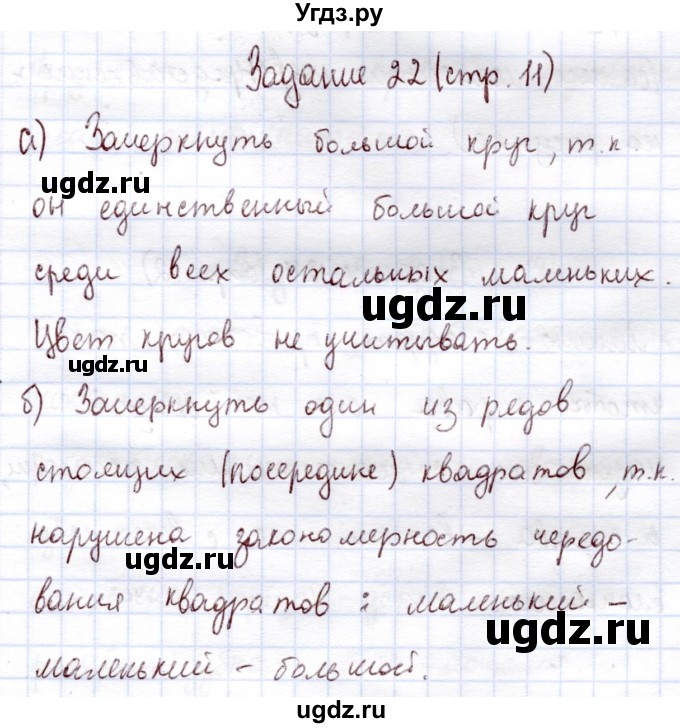 Угдз.ру
Задание 22 (стр. 11)
а) Зачеркнуть большой круг, т.к.
ugdz.ru
он единственный большой круг
среди всех остальных маленьких.
ugdz.ru
Цвет кругов не учитывать.
ugdz.ru
б) Зачеркнуть один из рядов
стоящих (посередине) квадратов, т.к.
нарушена закономерность чередо-
ugdz.ru
вания квадратов : маленький -
ugdz.ru
маленький - большой.
ugdz.ru